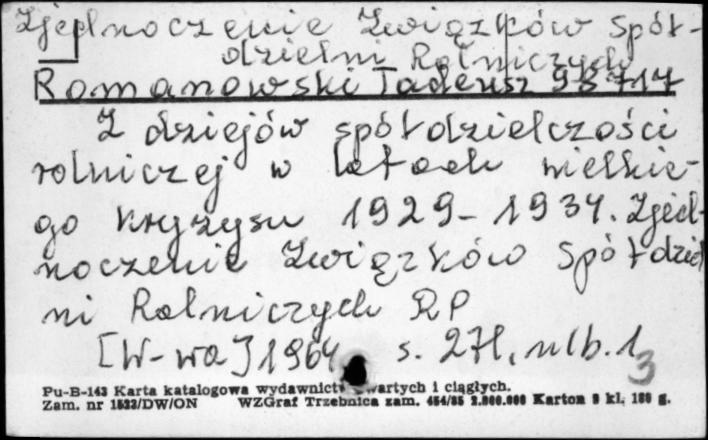 Zjednoczenie Związków Spół-
dzielni Rolniczych
Romanowski Tadeusz 98717
Z dziejów spółdzielczości
rolniczej w latach wielkie-
go kryzysu 1929-1934. Zjed-
noczenie Związków Spółdziel
ni Rolniczych RP
[W-wa] 1964 s. 271, nlb. 1
3
Pu-B-143 Karta katalogowa wydawnictw zwartych i ciągłych.
Zam. nr 1533/DW/ON WZGraf Trzebnica zam. 454/85 2.000.000 Karton 9 kl. 180 g.